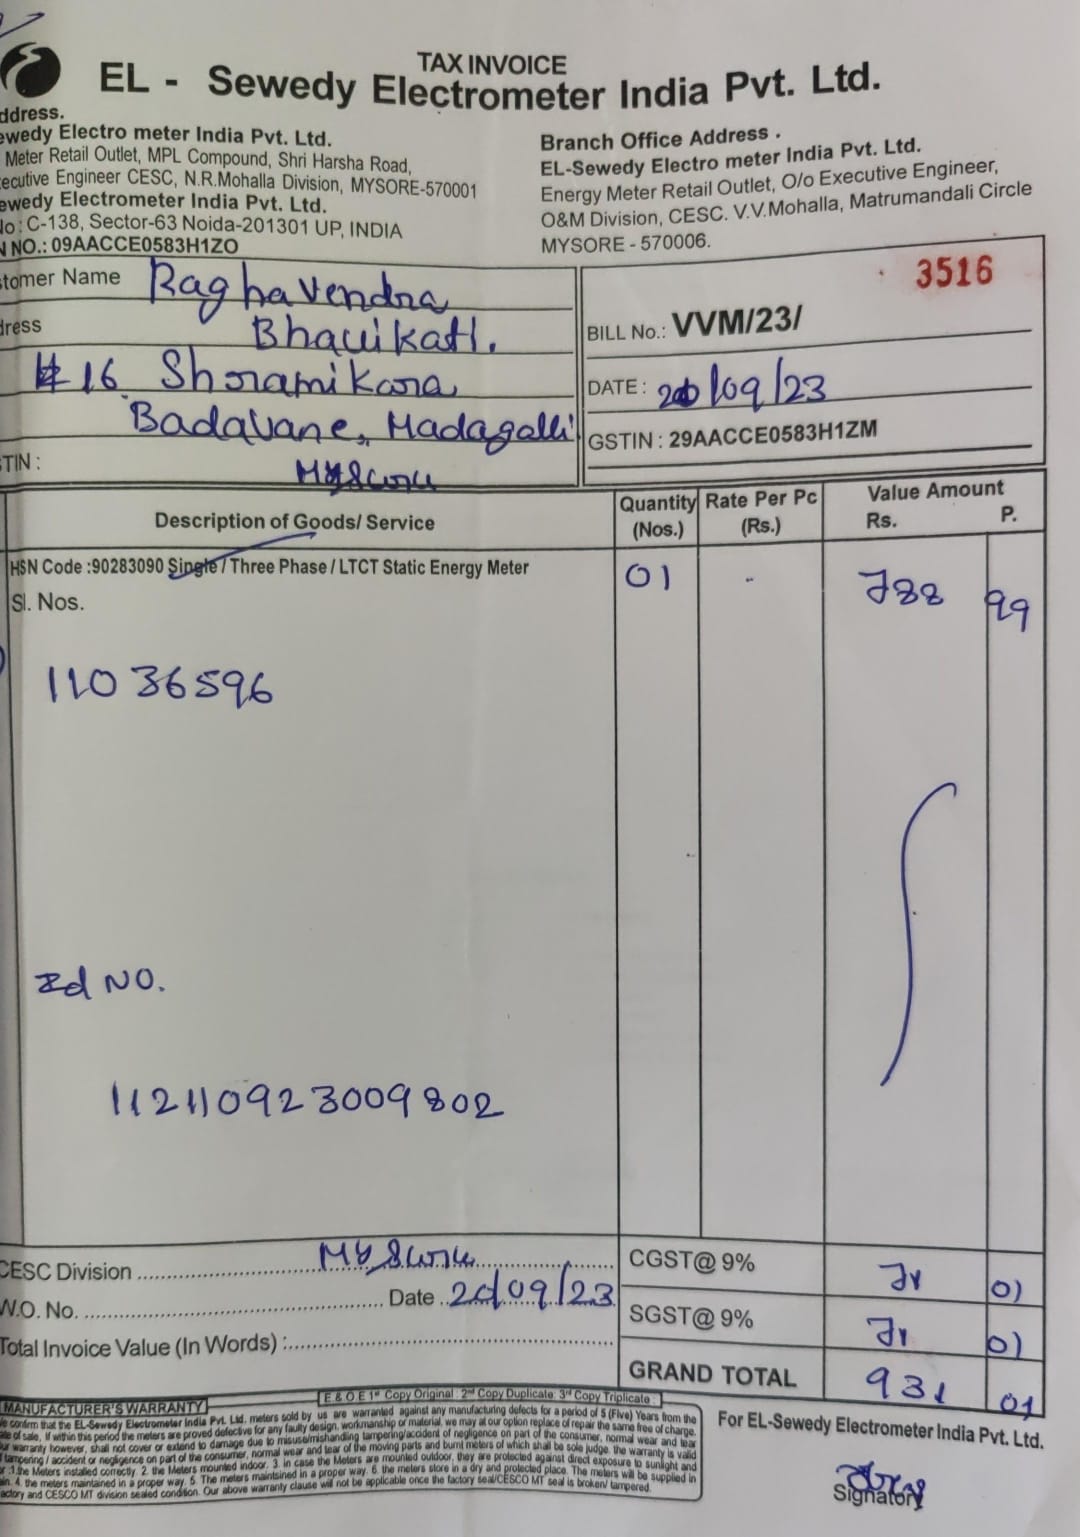 TAX INVOICE
EL - Sewedy Electrometer India Pvt. Ltd.
ddress.
ewedy Electro meter India Pvt. Ltd.
Meter Retail Outlet, MPL Compound, Shri Harsha Road,
ecutive Engineer CESC, N.R.Mohalla Division, MYSORE-570001
ewedy Electrometer India Pvt. Ltd.
No: C-138, Sector-63 Noida-201301 UP, INDIA
N NO.: 09AACCE0583H1ZO
Branch Office Address .
EL-Sewedy Electro meter India Pvt. Ltd.
Energy Meter Retail Outlet, O/o Executive Engineer,
O&M Division, CESC. V.V.Mohalla, Matrumandali Circle
MYSORE - 570006.
stomer Name Raghavendra
dress
# 16 Shramikara
Badavane, Madagalli
STIN :
3516
BILL No.: VVM/23/
DATE : /09/23
GSTIN : 29AACCE0583H1ZM
Description of Goods/ Service Quantity (Nos.) Rate Per Pc (Rs.) Value Amount Rs. P.
HSN Code :90283090 Single / Three Phase / LTCT Static Energy Meter 01 - 788 99
Sl. Nos.
11036596
Id NO.
112110923009802
CESC Division Mysore CGST@ 9% 71 01
W.O. No. Date /09/23 SGST@ 9% 71 01
Total Invoice Value (In Words) : GRAND TOTAL 931 01
E & O.E 1st Copy Original : 2nd Copy Duplicate: 3rd Copy Triplicate :
MANUFACTURER'S WARRANTY
e confirm that the EL-Sewedy Electrometer India Pvt. Ltd. meters sold by us are warranted against any manufacturing defects for a period of 5 (Five) Years from the
ate of sale, If within this period the meters are proved defective for any faulty design, workmanship or material, we may at our option replace of repair the same free of charge.
ur warranty however, shall not cover or extend to damage due to misuse/mishandling tampering/accident of negligence on part of the consumer, normal wear and tear
tampering / accident or negligence on part of the consumer, normal wear and tear of the moving parts and burnt meters of which shall be sole judge. the warranty is valid
r :1.the Meters installed correctly. 2. the Meters mounted indoor. 3. in case the Meters are mounted outdoor, they are protected against direct exposure to sunlight and
in. 4. the meters maintained in a proper way. 5. The meters maintsined in a proper way. 6. the meters store in a dry and protected place. The meters will be supplied in
actory and CESCO MT division sealed condition. Our above warranty clause will not be applicable once the factory seal/CESCO MT seal is broken/ tampered.
For EL-Sewedy Electrometer India Pvt. Ltd.
Signatory